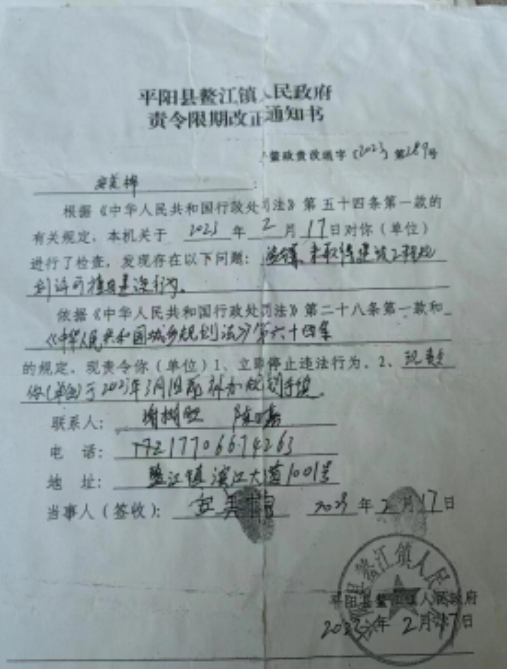 平阳县鳌江镇人民政府
责令限期改正通知书
平鳌政责改通字〔2023〕第289号
根据《中华人民共和国行政处罚法》第五十四条第一款的
有关规定，本机关于 2023 年 2 月 17 日对你（单位）
进行了检查，发现存在以下问题： 未取得建设工程规
划许可擅自建设行为。
依据《中华人民共和国行政处罚法》第二十八条第一款和
《中华人民共和国城乡规划法》第六十四条
的规定，现责令你（单位）1、立即停止违法行为。2、现责令
你（单位）于2023年3月1日前补办规划手续
联系人：
电 话： 17706674263
地 址： 鳌江镇滨江大道1001号
当事人（签收）： 2023 年 2 月 17 日
平阳县鳌江镇人民政府
平阳县鳌江镇人民政府
2023 年 2 月 17 日